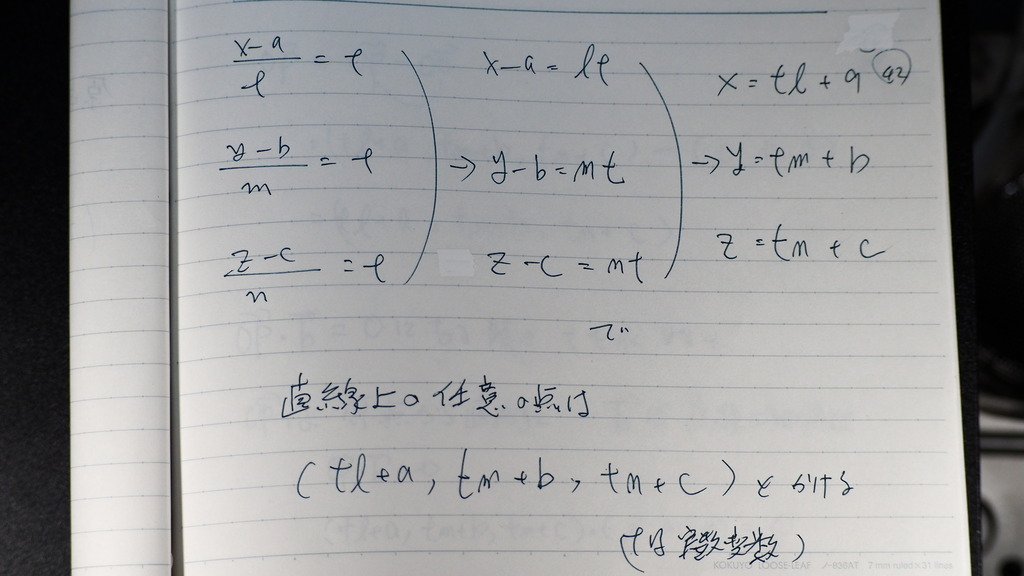 (x-a)/l = t x-a = lt x = tl + a 42
(y-b)/m = t → y-b = mt → y = tm + b
(z-c)/n = t z-c = nt z = tn + c
で
直線上の任意の点は
(tl+a, tm+b, tn+c) とかける
(tは実数変数)
KOKUYO LOOSE-LEAF ノ-838AT 7 mm ruled x 31 lines